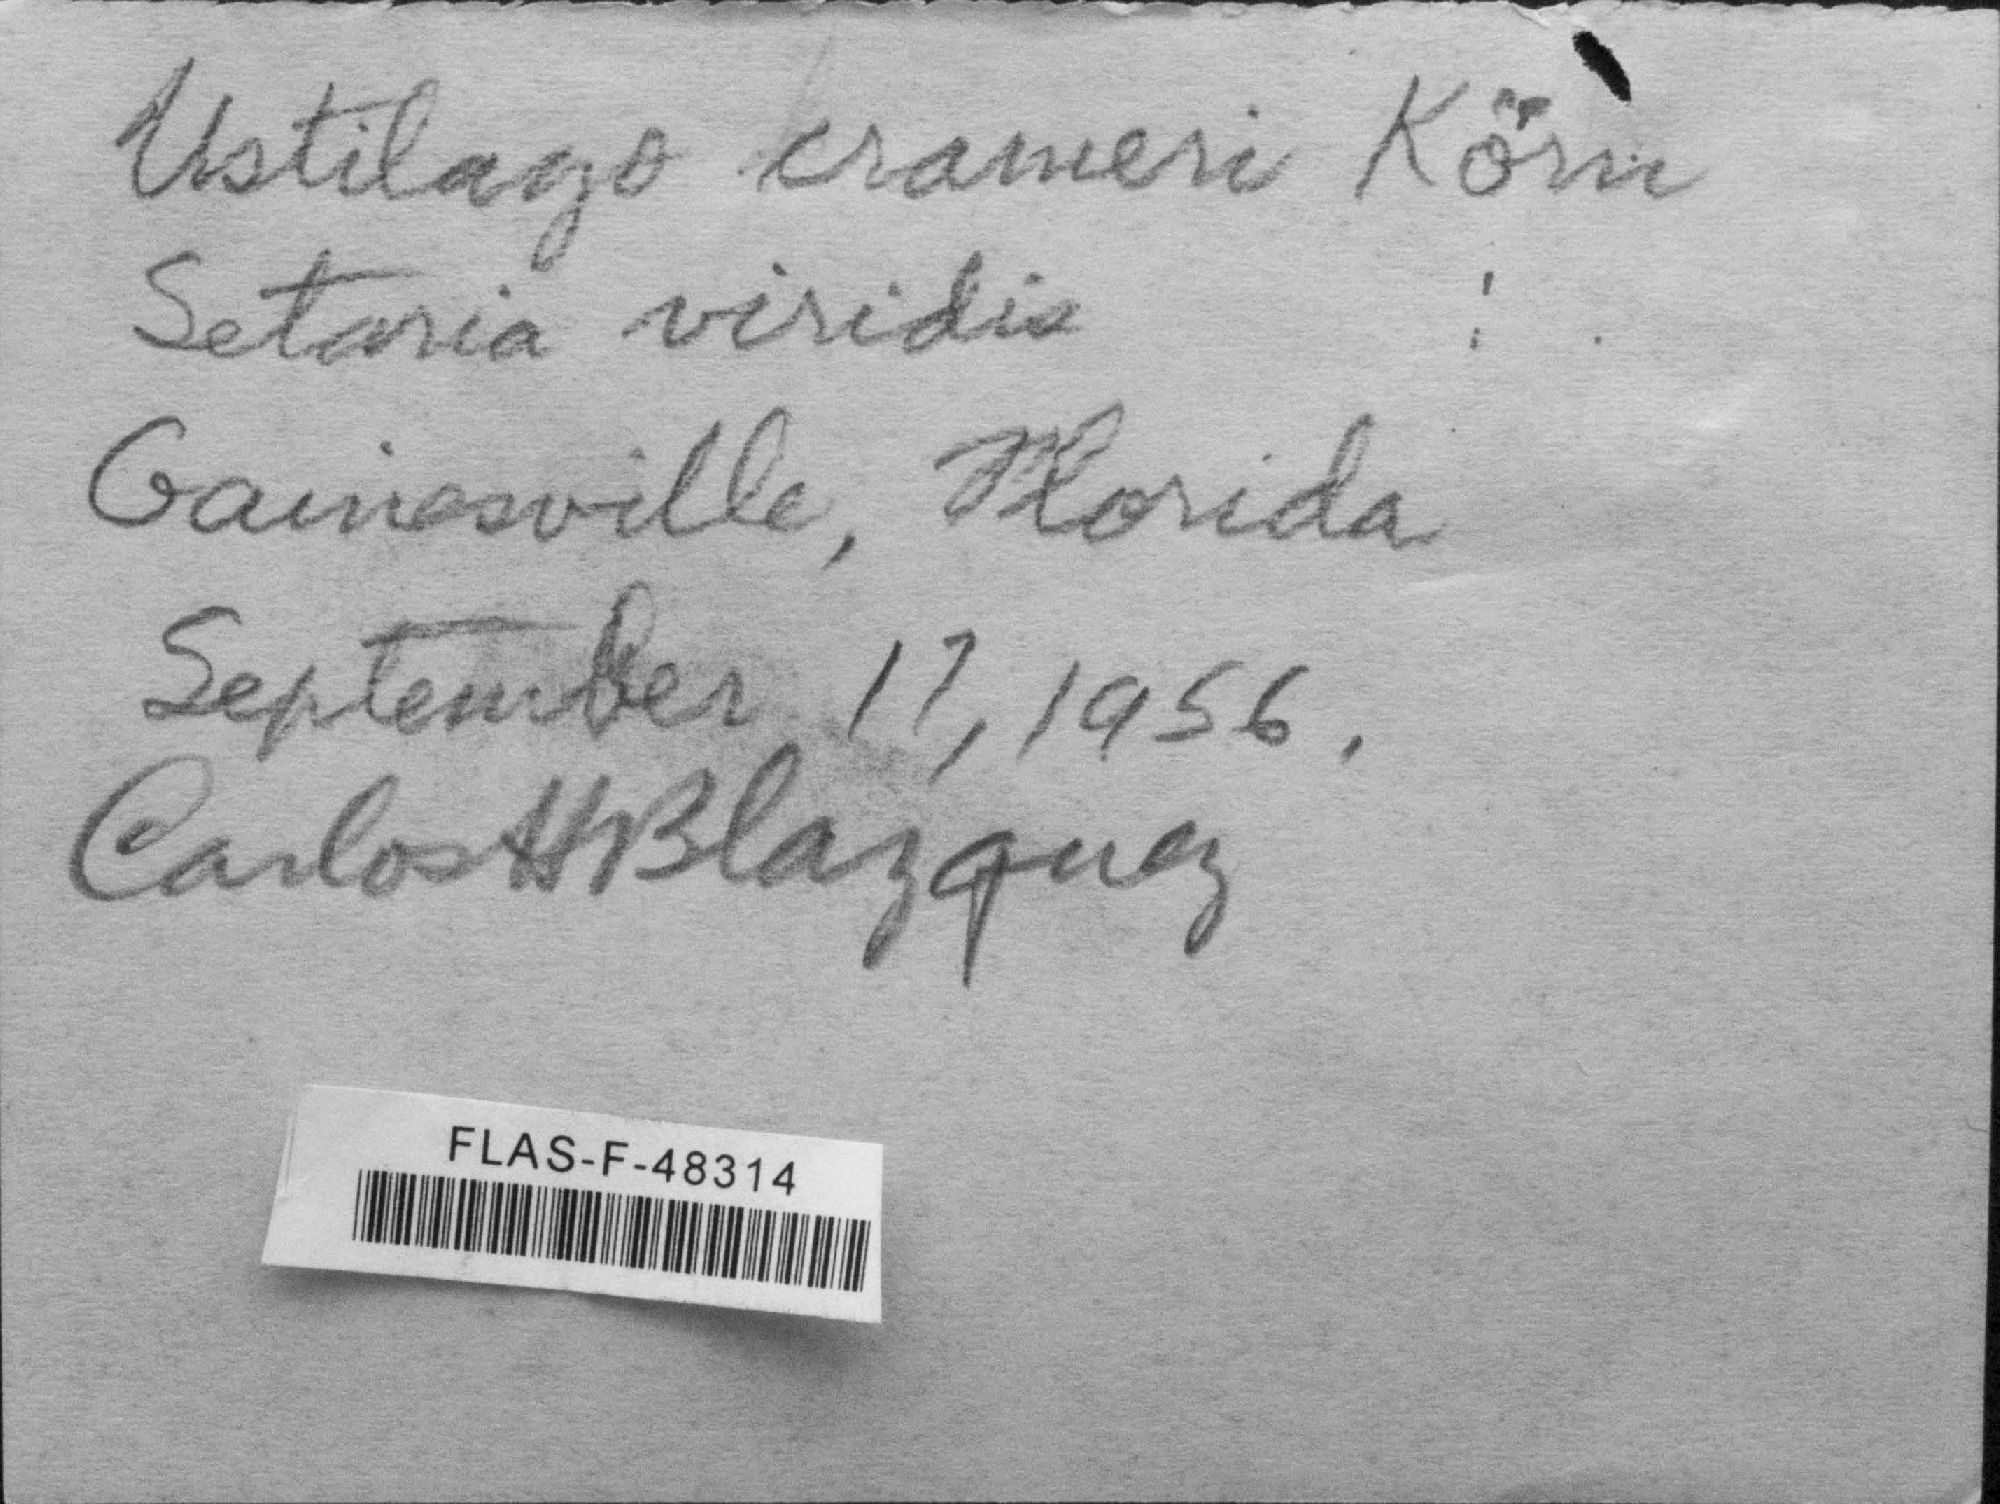 Ustilago crameri Körn
Setaria viridis
Gainesville, Florida
September 17, 1956.
Carlos H Blazquez
FLAS-F-48314